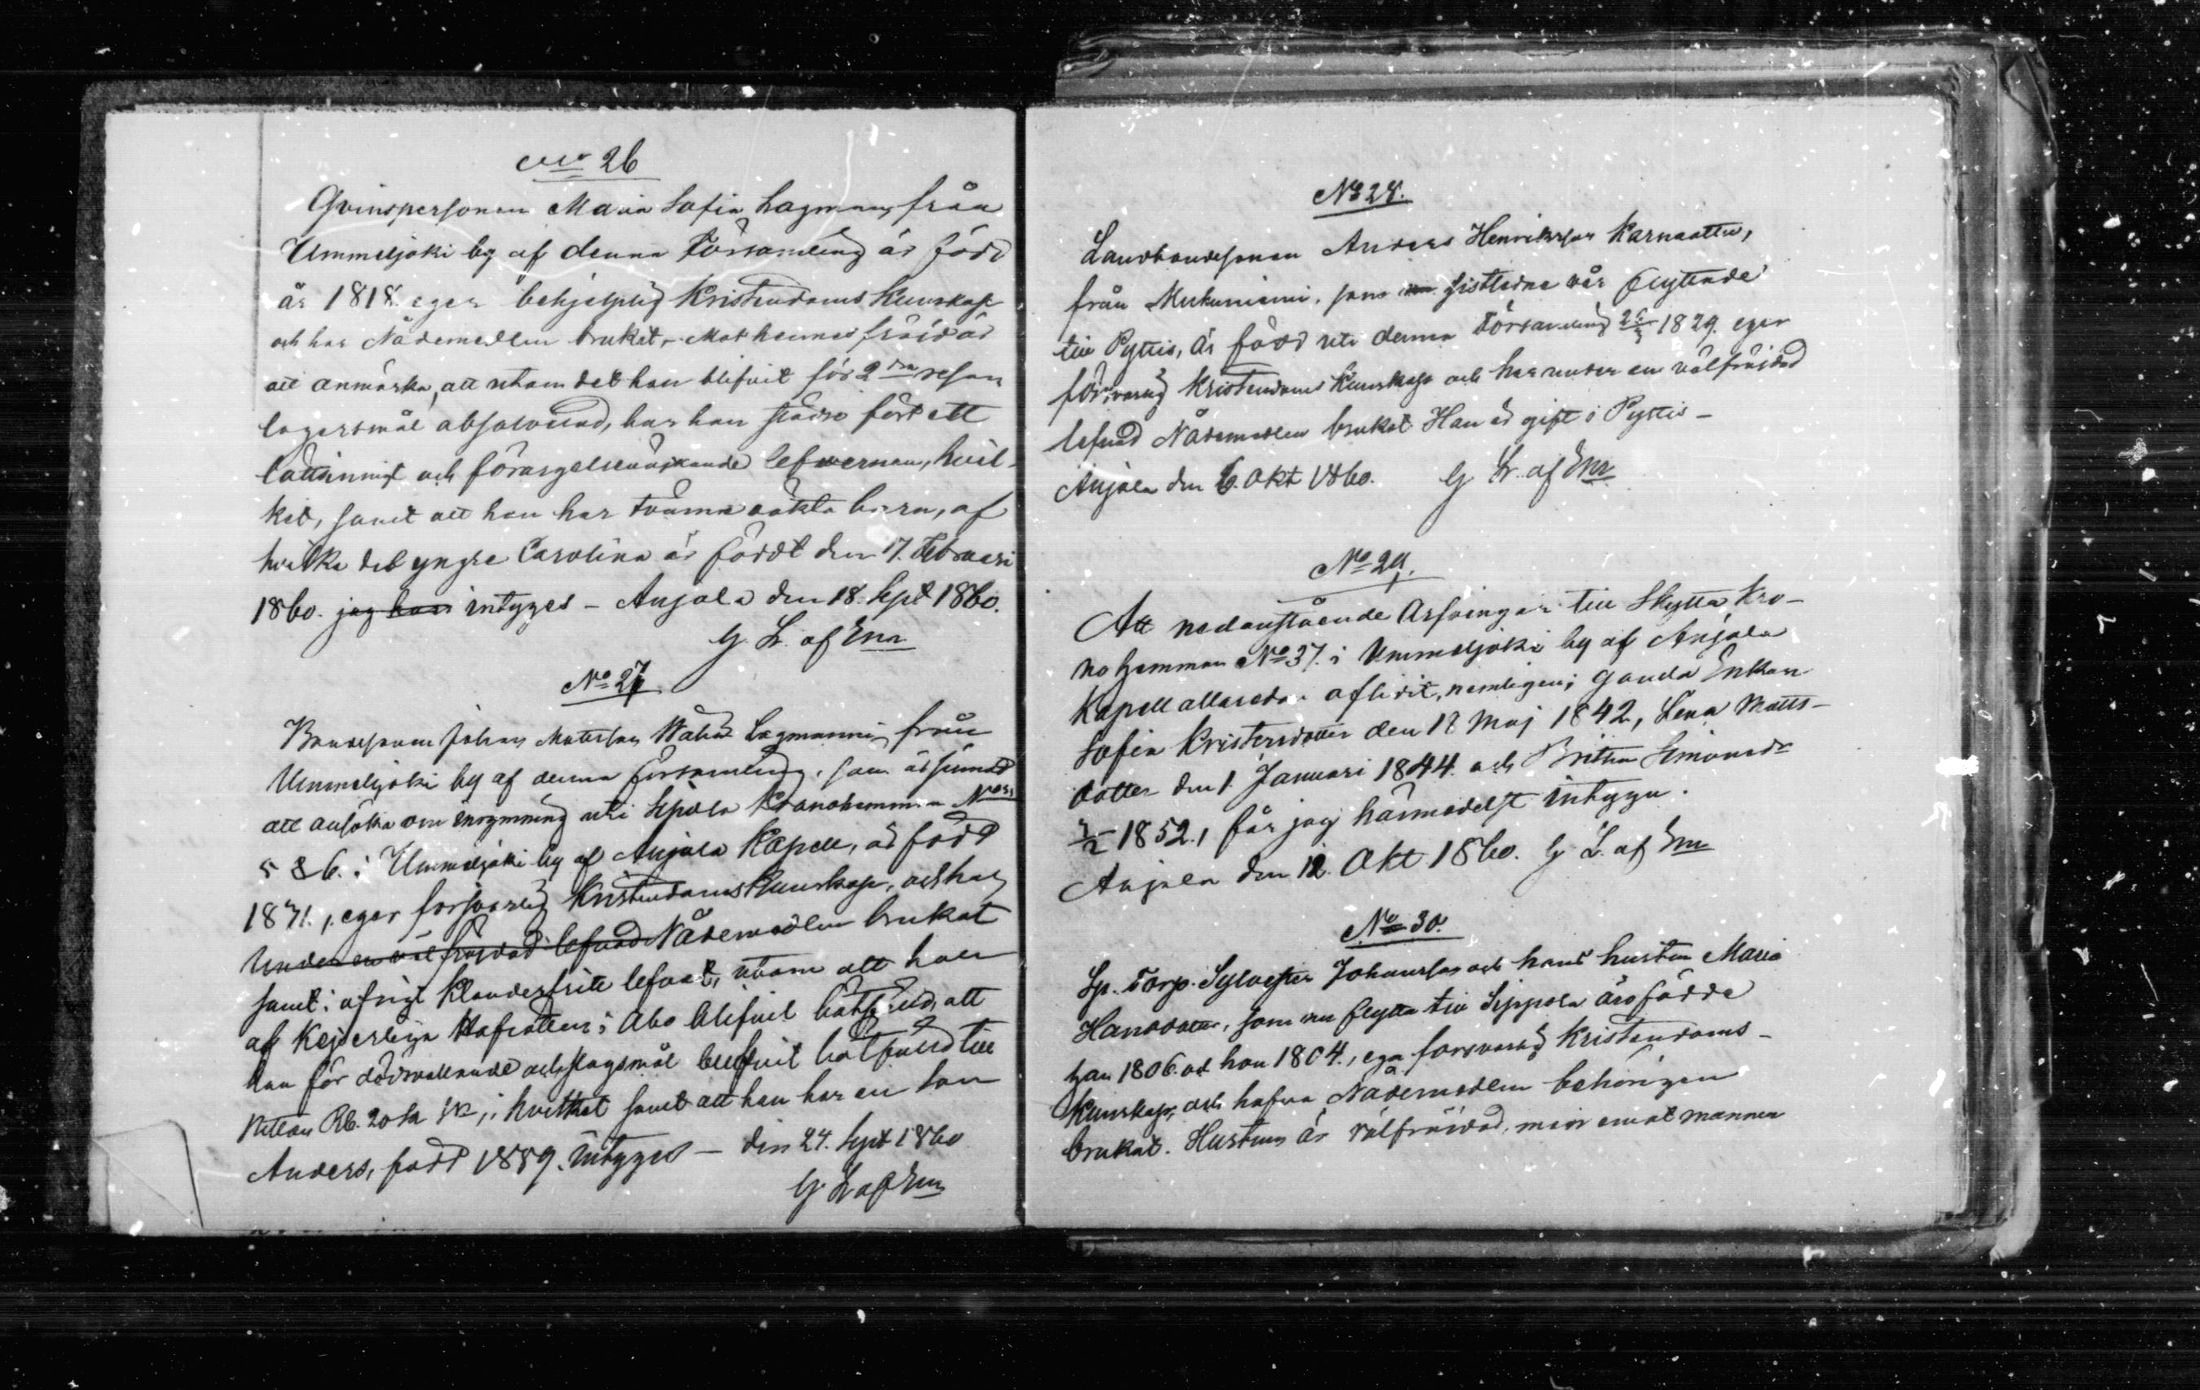 No 26
Qvinspersonen Maria Sofia Lagman, från
Ummeljoki by af denna Församling är född
år 1818. eger behjelplig Kristendoms Kunskap
och har Nådemedlen brukat,
att anmärka, att utom det hon blifvit för 2dra resan
lägersmål absolverad, har hon städse fört ett
lättsinnigt och förargelseväckande lefwerne, hvil-
ket, samt att hon har tvänne oäkta barn, af
hvilka det yngre Carolina är född den 17. Februari
1860. jag har intyges – Anjala den 18. Sept 1860.
G L. af Enr
No 27
Bondesonen Johan Matsson Lagmanni från
Ummeljoki by af denna församling, som är sinnad
att ansöka om inrymning uti Sipola Kronohemman Nris
5 & 6. i Ummeljoki by af Anjala Kapell, är född
18 , eger försvarlig Kristendoms Kunskap, och har
under en välfräjdad lefnad Nådemedlen brukat
samt i öfrigt klanderfritt lefvat, utom att han
af Kejserliga Hofrätten i Åbo blifvit
han för dödsvållande och slagsmål blifvit bötfälld till
Rb. 20 hvilket samt att han har en son
Anders, född 1859. intyges – den 24. Sept 1860
G L af Enr
No 28.
Landbondesonen Anders Henriksson Karnaatti,
från Mukuniemi, som sistledne vår flyttade
till Pyttis, är född uti denna Församling 1829. eger
försvarlig Kristendoms Kunskap och har under en välfräjdad
lefnad Nådemedlen brukat. Han är gift i Pyttis –
Anjala den 6. Okt 1860. G L. af Enr
No 29.
Att nedanstående Arfvingar till Skyttä Kro-
no hemman No 37. i Ummeljoki by af Anjala
Kapell allaredan aflidit, nemligen; gamla Enkan
Sofia Kristersdotter den 18 Maj 1842, Lena Matts-
dotter den 1 Januari 1844. och Britha Simonsdr
1852., får jag härmedelst intyga.
Anjala den 12. Okt 1860. G L. af Enr
No 30.
Sp. Torp. Sylvester Johansson och hans hustru Maria
Hansdotter, som nu flytta till Sippola äro födde
han 1806. och hon 1804., ega försvarlig Kristendoms-
Kunskap, och hafva Nådemedlen behörigen
brukat. Hustrun är välfräjdad, men emot mannen